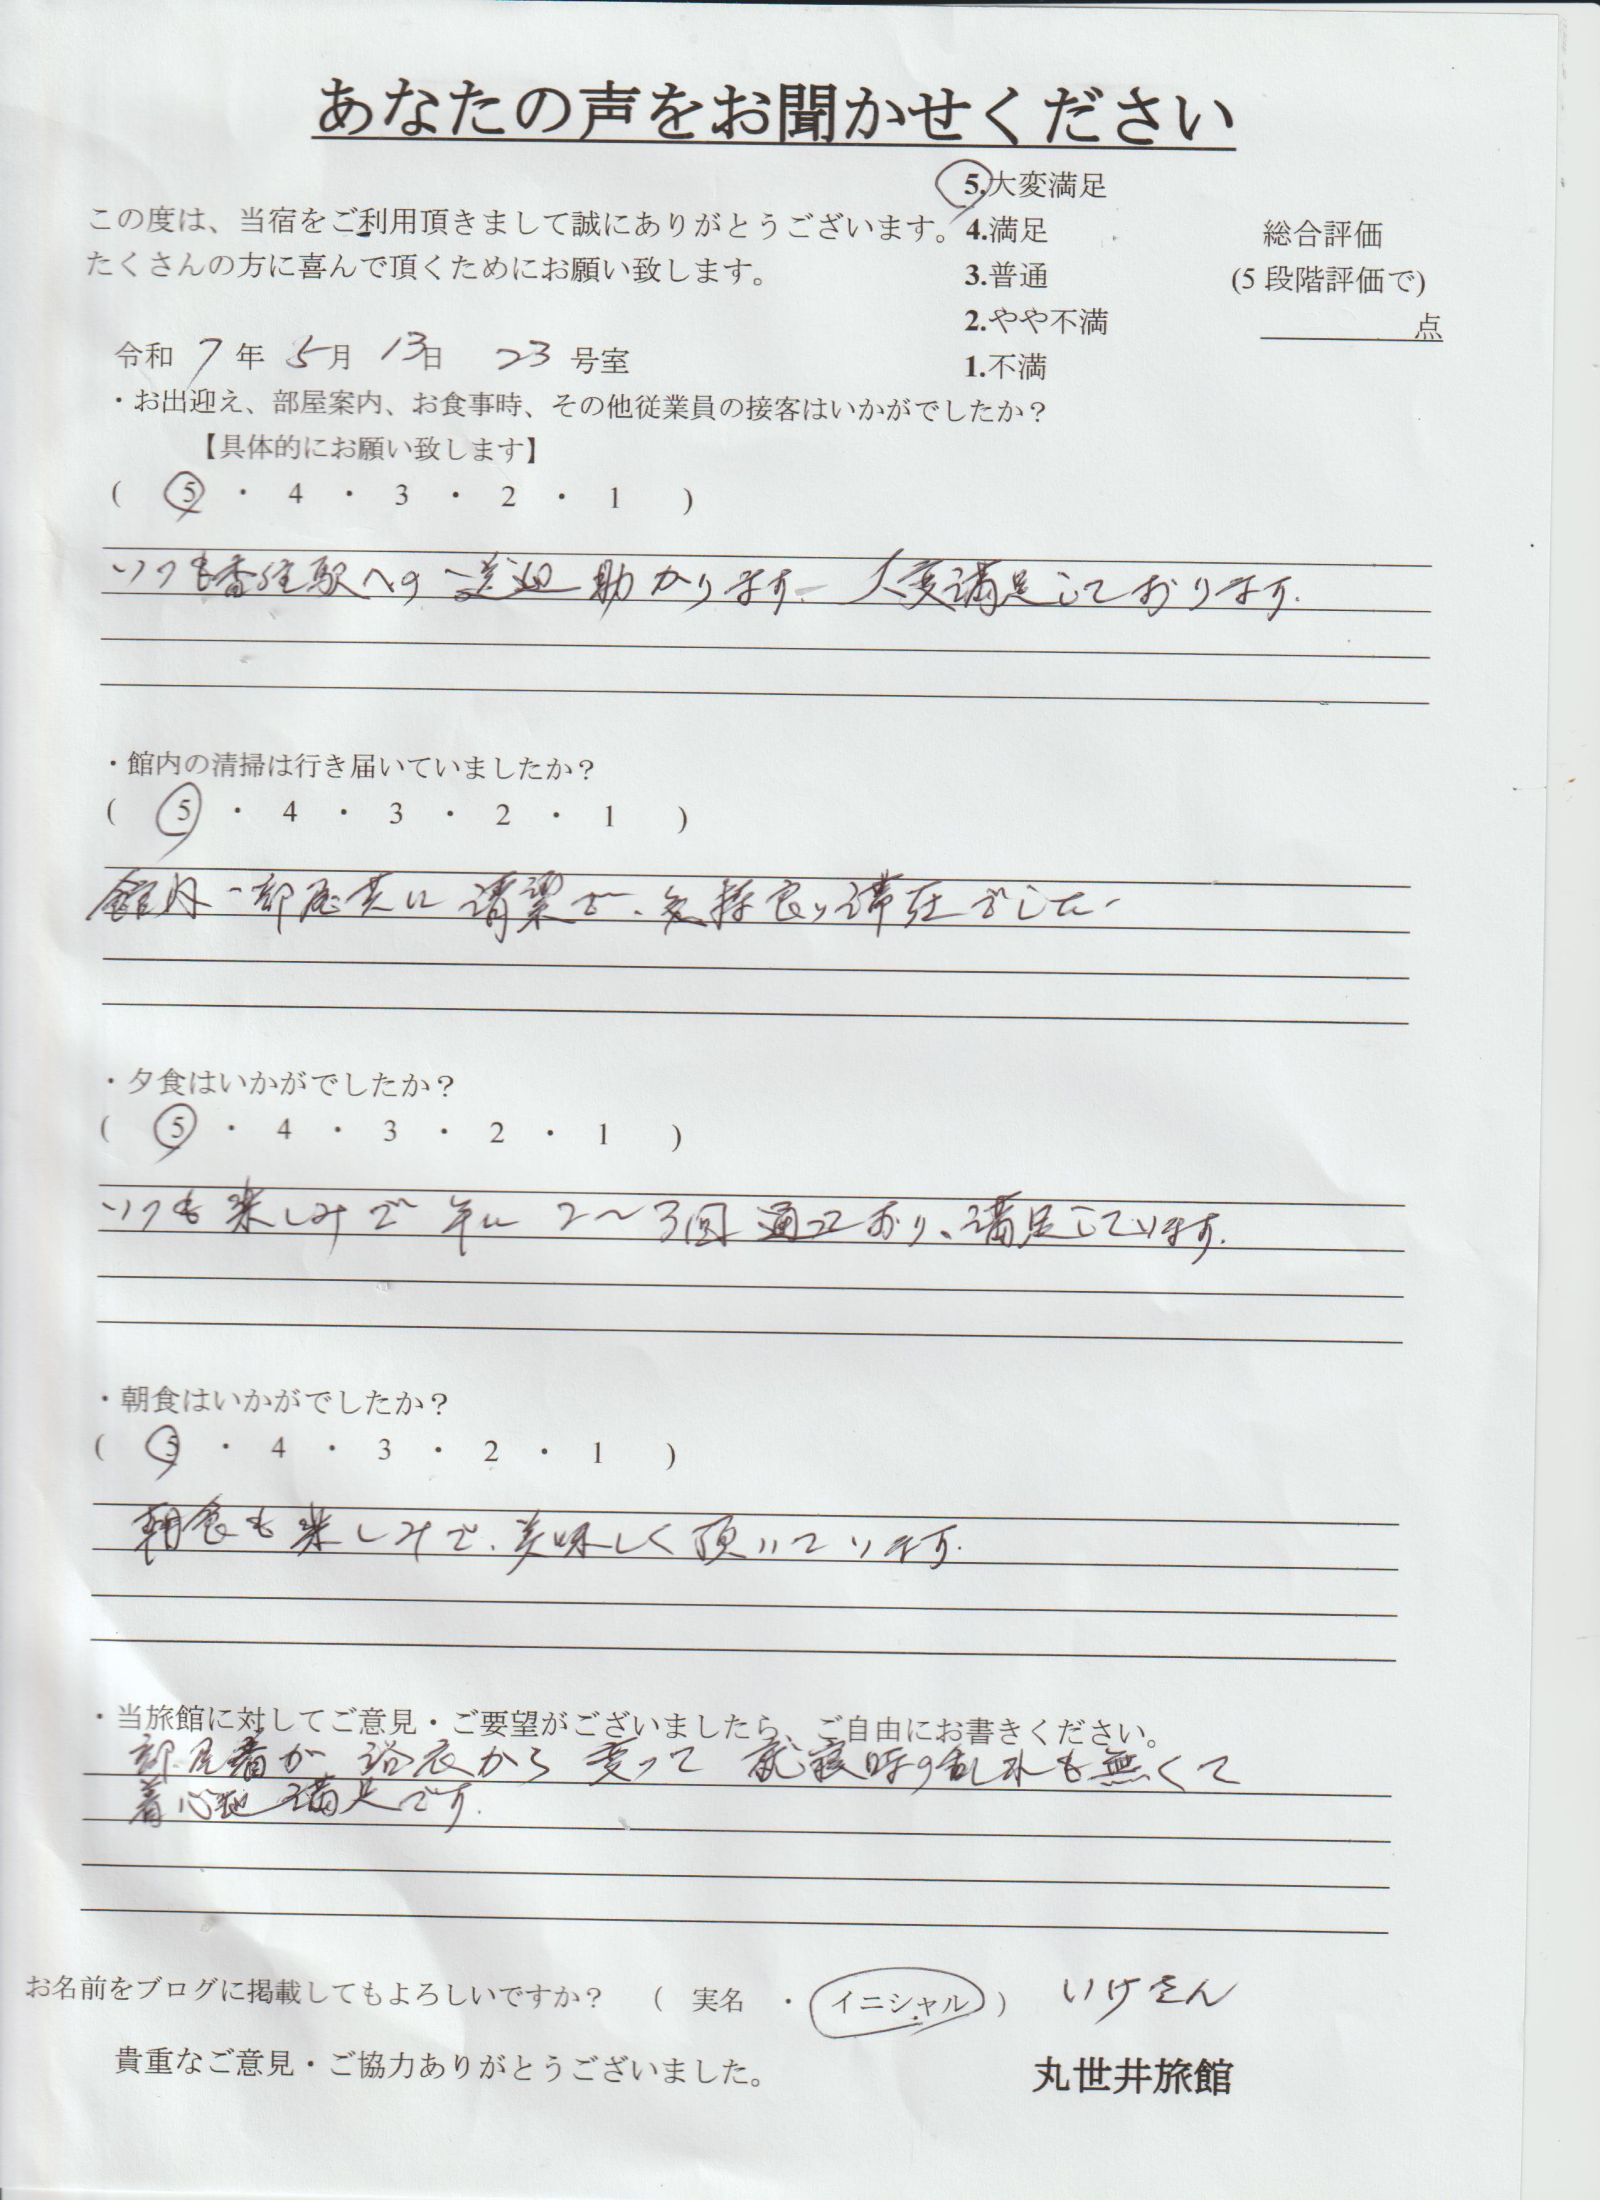 あなたの声をお聞かせください
この度は、当宿をご利用頂きまして誠にありがとうございます。
たくさんの方に喜んで頂くためにお願い致します。
5.大変満足
4.満足
3.普通
2.やや不満
1.不満
総合評価
(5 段階評価で)
点
令和 7 年 5月 13日 23 号室
・お出迎え、部屋案内、お食事時、その他従業員の接客はいかがでしたか？
【具体的にお願い致します】
( 5 ・ 4 ・ 3 ・ 2 ・ 1 )
いつも香住駅への送迎助かります。大変満足しております。
・館内の清掃は行き届いていましたか？
( 5 ・ 4 ・ 3 ・ 2 ・ 1 )
館内、部屋共に清潔で、気持良い滞在でした。
・夕食はいかがでしたか？
( 5 ・ 4 ・ 3 ・ 2 ・ 1 )
いつも楽しみで年に2～3回通っており、満足しています。
・朝食はいかがでしたか？
( 5 ・ 4 ・ 3 ・ 2 ・ 1 )
朝食も楽しみで、美味しく頂いています。
・当旅館に対してご意見・ご要望がございましたら、ご自由にお書きください。
部屋着が浴衣から変って就寝時の乱れも無くて
着心地満足です。
お名前をブログに掲載してもよろしいですか？ ( 実名 ・ イニシャル ) いけさん
貴重なご意見・ご協力ありがとうございました。
丸世井旅館